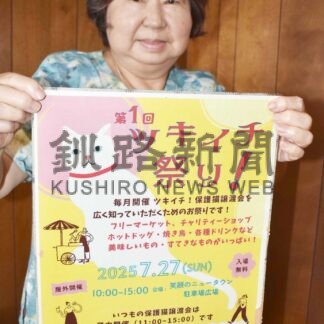 第1回
ツキイチ
祭り!
釧路新聞
KUSHIRO NEWS WEB
毎月開催 ツキイチ!保護猫譲渡会を
広く知っていただくためのお祭りです!
フリーマーケット、チャリティーショップ
ホットドッグ・焼き鳥・各種ドリンクなど
美味しいもの・すてきなものがいっぱい!
屋外開催
2025 7.27(SUN)
入場
無料
10:00-15:00 会場: 笑顔のニュータウン
駐車場広場
いつもの保護猫譲渡会は
開催(11:00~15:00)です